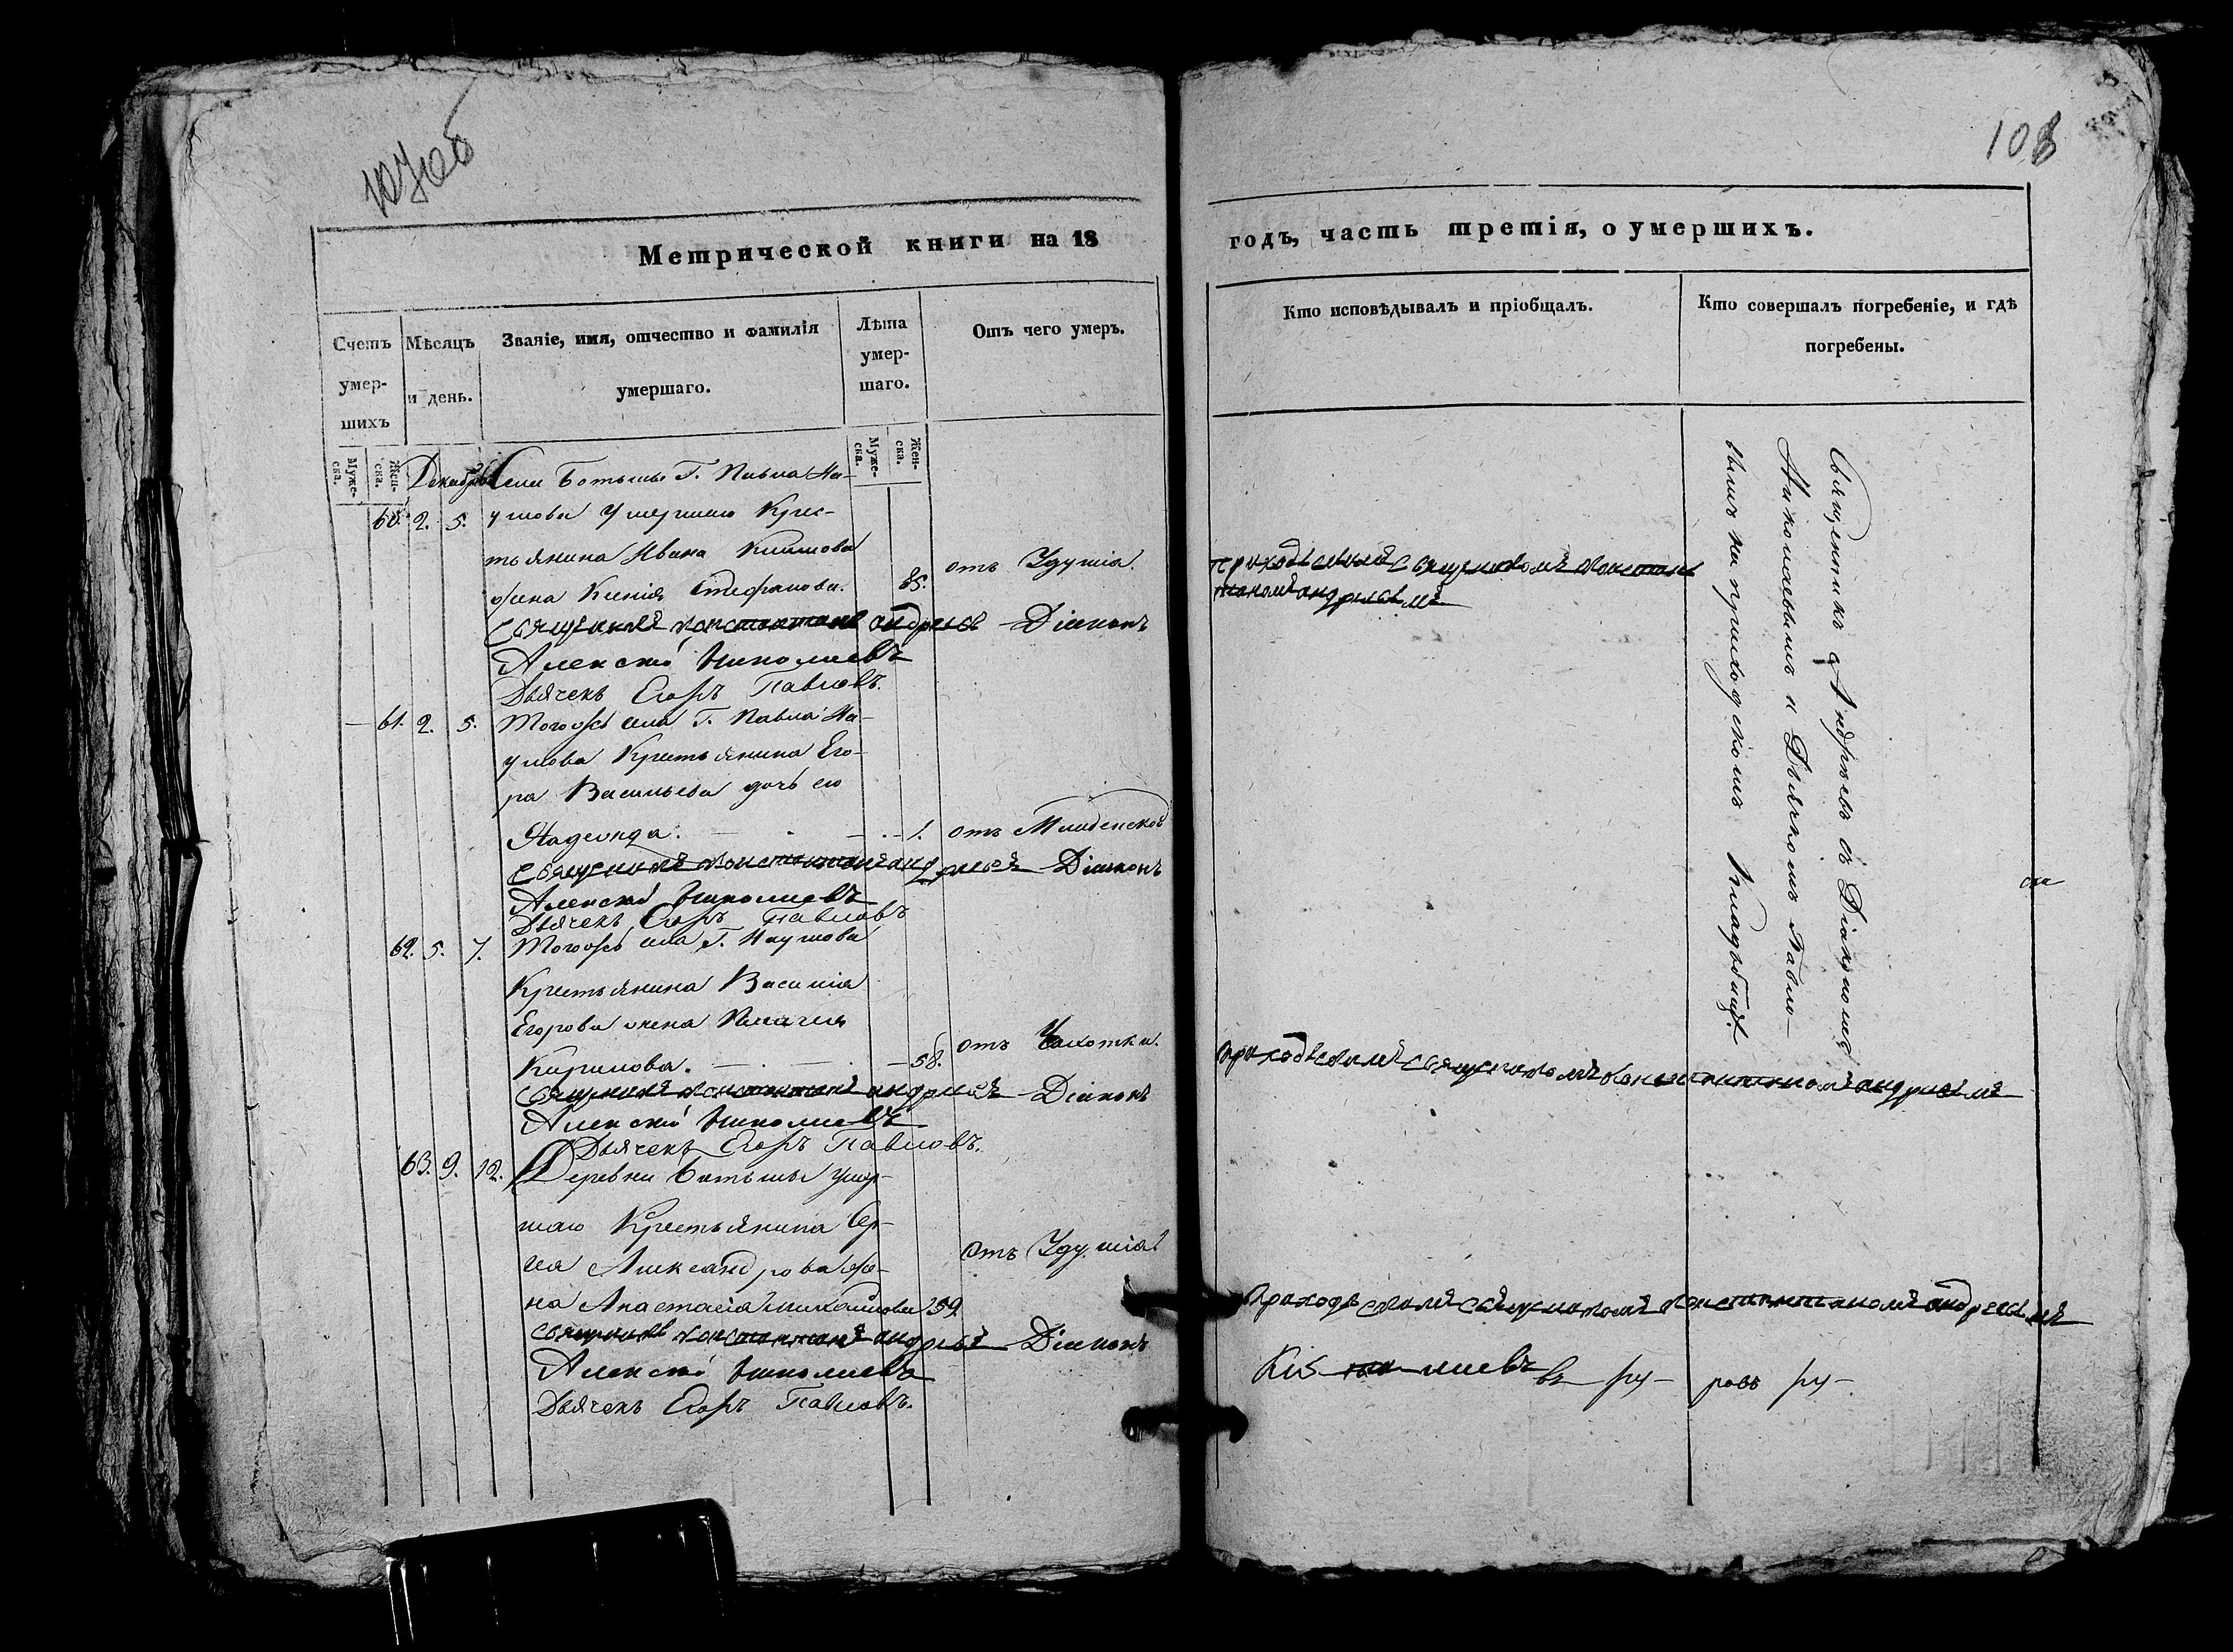 107об
108
Метрической книги на 18
годъ, часть третія, о умершихъ.
Счетъ умер-шихъ
Мѣсяцъ и день.
Званіе, имя, отчество и фамилія умершаго.
Лѣта умер-шаго.
Отъ чего умеръ.
Кто исповѣдывалъ и пріобщалъ.
Кто совершалъ погребеніе, и гдѣ погребены.
Муже-ска.
Жен-ска.
Муже-ска.
Жен-ска.
Декабрь
Села Ботьмы Г. Павла На-
60. 2. 5. умова умершаго Крес-
тьянина Ивана Климова
жена Ксенія Стефанова. 85. отъ Удушія.
Приходскимъ священникомъ Констан
тиномъ андреевымъ
священникъ константинъ андреевъ Діаконъ
Алексѣй Николаевъ
Дьячекъ Егоръ Павловъ.
61. 2. 5. Тогожъ села Г. Павла На-
умова Крестьянина Его-
ра Васильева дочь его
Надежда. 1. отъ Младенской
священникъ константинъ андреевъ Діаконъ
Алексѣй Николаевъ
Дьячекъ Егоръ Павловъ
62. 5. 7. Тогожъ села Г. Наумова
Крестьянина Василія
Егорова жена
Кирилова. 58. отъ Чахотки.
приходскимъ священникомъ константиномъ андреевымъ
священникъ константинъ андреевъ Діаконъ
Алексѣй Николаевъ
Дьячекъ Егоръ Павловъ.
63. 9. 12. Деревни Ботьмы умер-
шаго Крестьянина Сер-
гея Александрова же-
на Анастасія Михайлова 59. отъ Удушія
приходскимъ священникомъ константиномъ андреевымъ
священникъ константинъ андреевъ Діаконъ
Алексѣй Николаевъ
Дьячекъ Егоръ Павловъ.
Священникъ Андреевъ съ Діакономъ
Николаевымъ и Дьячкомъ Павло-
вымъ на приходскомъ кладбищѣ.